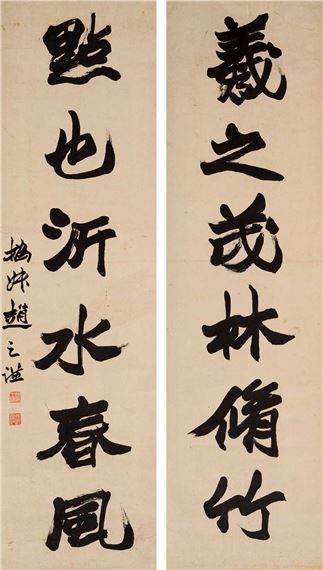 羲之茂林脩竹
點也沂水春風
撝叔趙之謙